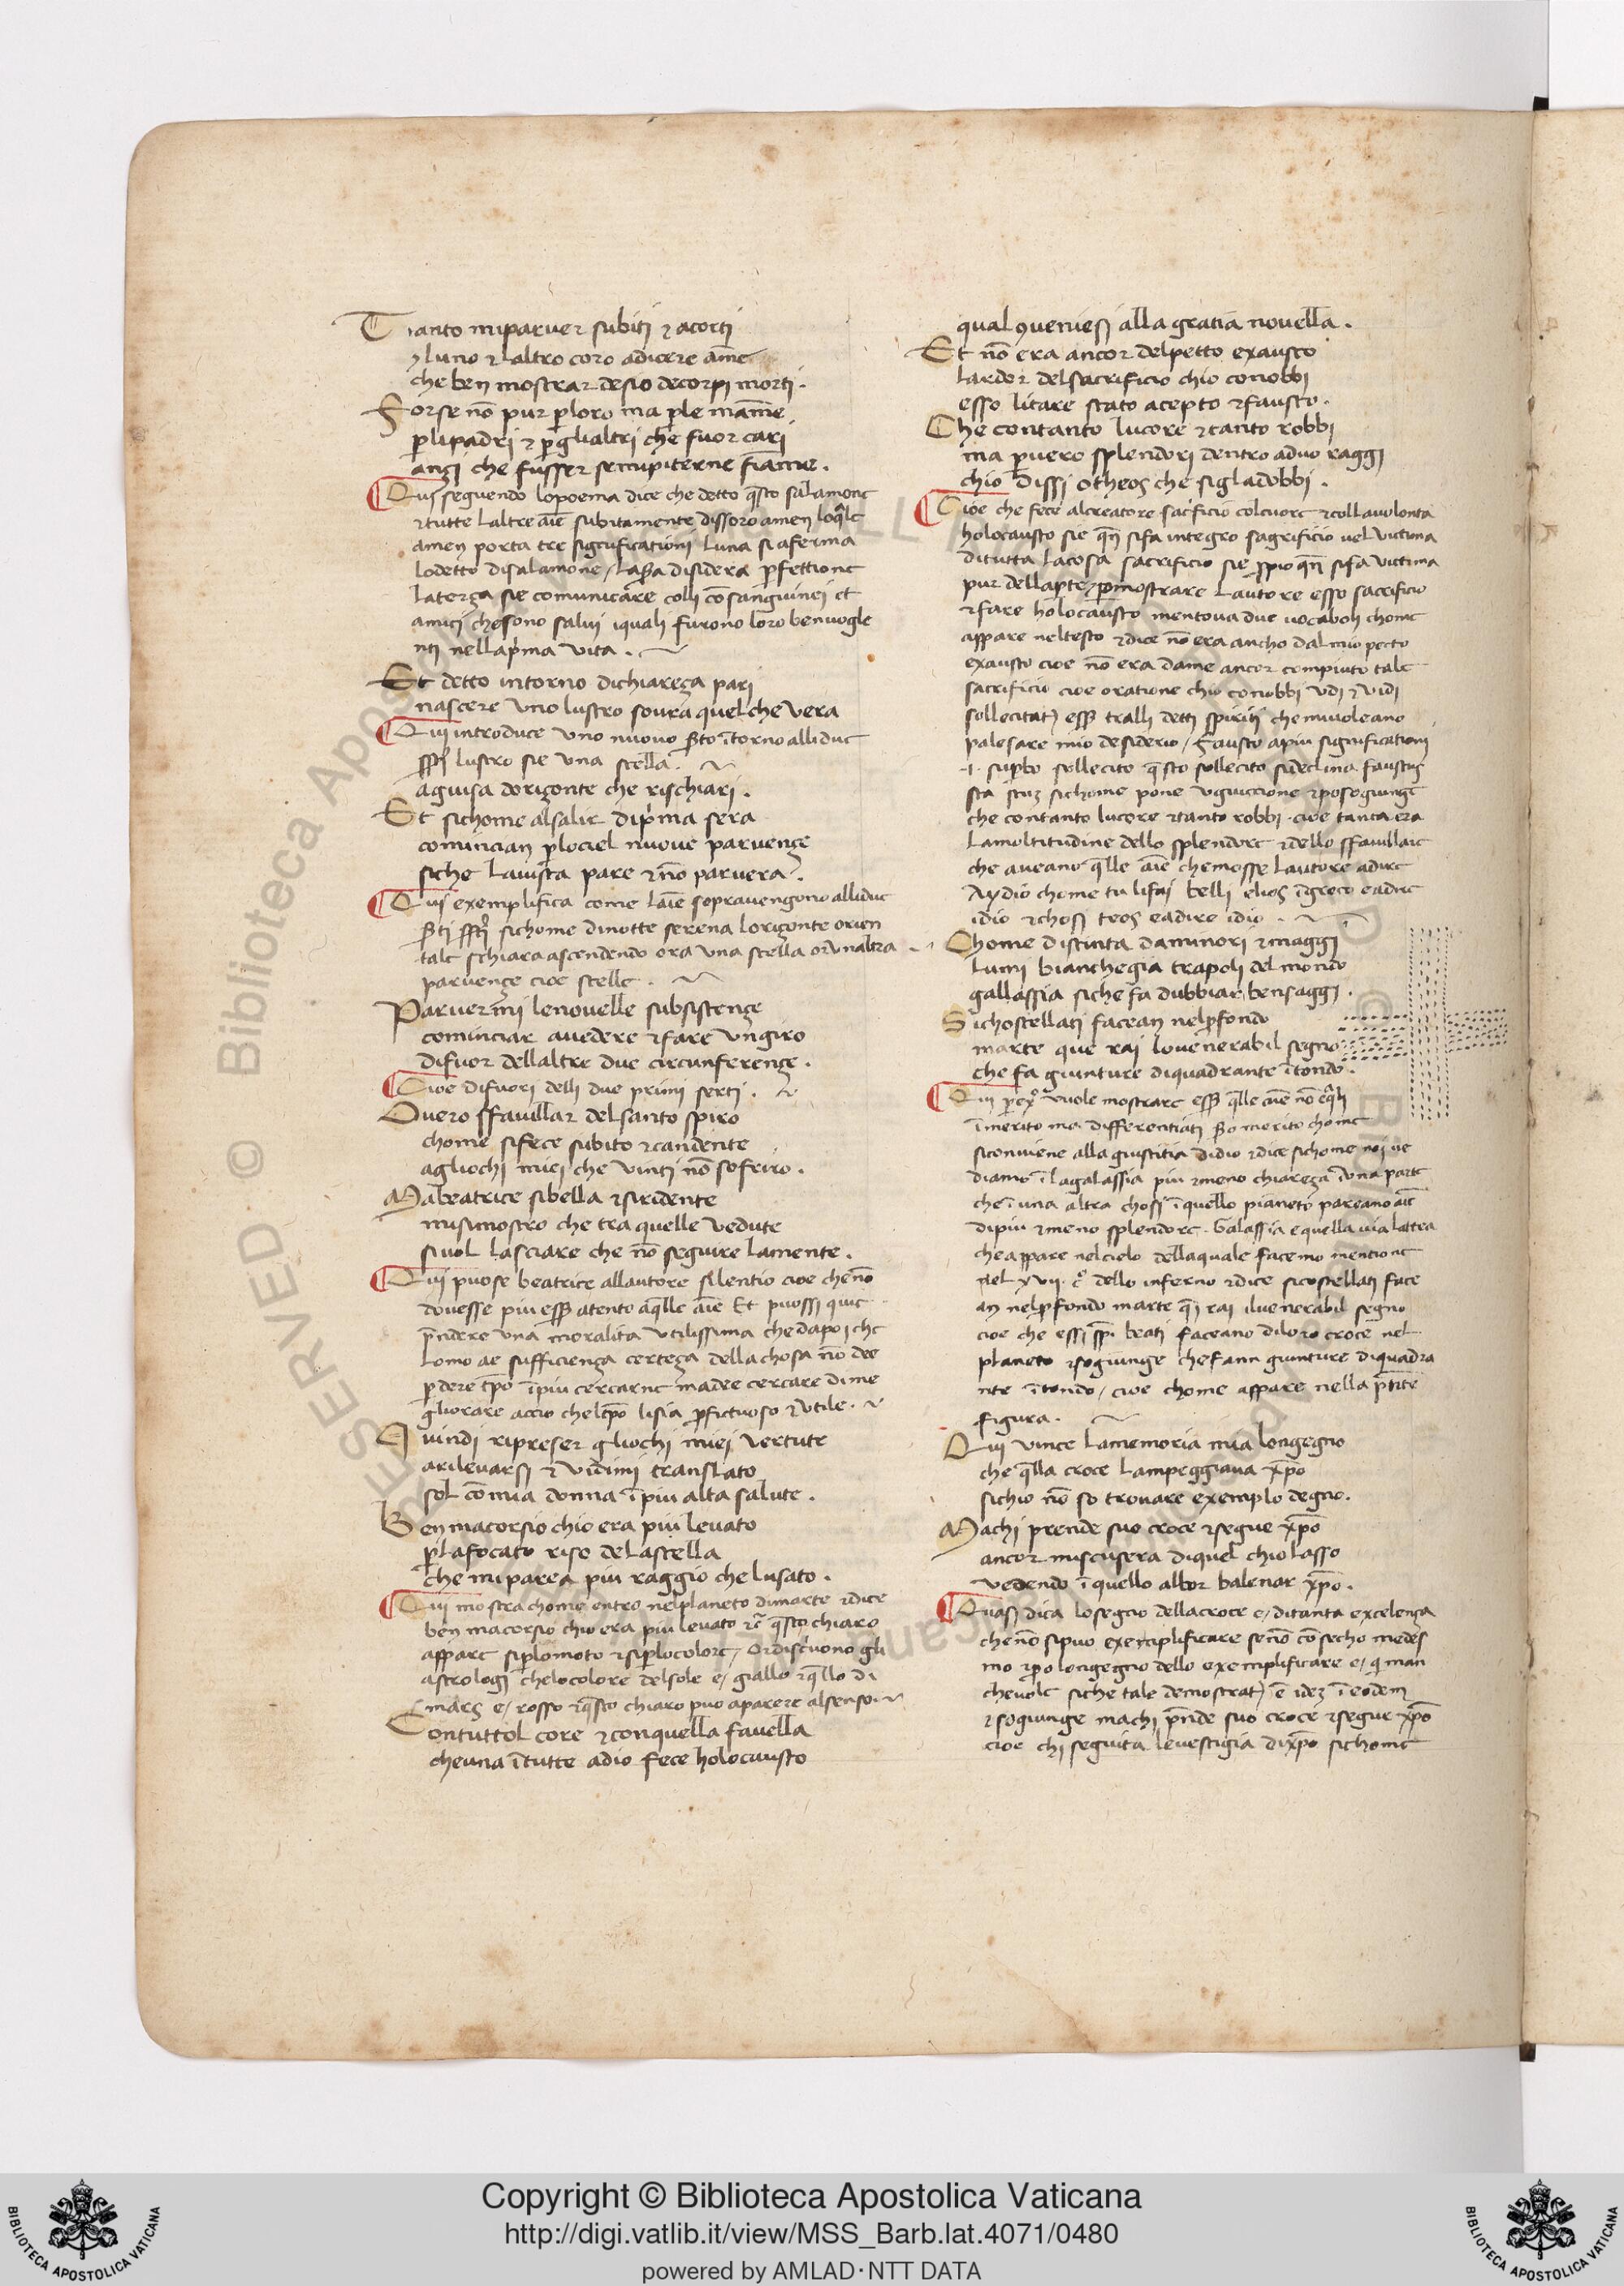 Tanto miparuer subiti ⁊ acorti
yluno ⁊ laltro coro adicere am̄e
che ben mostrar desio decorpi morti.
Forse nō pur ꝑloro ma ꝑle mam̄e
ꝑlipadri ⁊ ꝑglialtri che fuor cari
anzi che fusser sempiterne fiam̄e.
Qui seguendo lopoema dice che detto q̄sto salamone
⁊tutte laltre aīe subitamente dissoro amen loq̄le
amen porta tre significationi luna si aferma
lodetto disalamone / la disidera ꝑfettione
laterza sie comunicare colli cōsanguinei et
amici chesono salui iquali furono loro benuogle
nti nellap̄ma vita.
Et detto intorno dichiareza pari
nascere vno lustro soura quelche vera
Qui introduce vno nuouo ītorno alliduc
lustro sie vna stella.
aguisa dorizonte che rischiari.
Et sichome alsalir dip̄ma sera
comincian ꝑlociel nuoue paruenze
siche lauista pare ⁊ nō paruera.
Qui exemplifica come laīe soprauengono alliduc
sichome dinotte serena lorizonte orien
tale schiara ascendendo ora vna stella orvnaltra
paruenze cioe stelle.
Paruermi lenouelle subsistenze
cominciar auedere ⁊fare vngiro
difuor dellaltre due circunferenze.
Cioe difuori delli due primi serti.
Ouero sfauillar delsanto spiro
chome sifece subito ⁊candente
agliochi miei che vinti nō sofriro.
Mabeatrice sibella ⁊siridente
misimostro che tra quelle vedute
sivol lasciare che nō seguire lamente.
Qui puose beatrice allautore silentio cioe chenō
douesse piu atento aq̄lle aīe Et puossi quic
p̄ndere vna moralita vtilissima che dapoi che
lomo ae sufficienza certeza dellachosa nō dee
ꝑdere tp̄o īpiu cercarne madee cercare dime
gliorare accio cheltp̄o lisia ꝑfictuoso ⁊vtile.
Quindi ripreser gliochi miei vertute
arileuarsi ⁊ vidimi translato
sol cōmia donna īpiu alta salute.
Ben macorsio chio era piu leuato
ꝑlafocato riso delastella
che miparea piu raggio che lusato.
Qui mostra chome entro nelplaneto dimarte ⁊dice
ben macorsio chio era piu leuato ⁊c̄ q̄sto chiaro
appare siꝑlomoto ⁊siꝑlocolore / Ordiscriuono gli
astrologi chelocolore delsole e / giallo ⁊q̄llo di
mars e / rosso ⁊q̄sto chiaro puo aparere alsenso.
Contuttol core ⁊conquella fauella
cheuna ītutte adio fece holocausto
qual ꝯueniesi alla gratia nouella.
Et nō era ancor delpetto exausto
lardor delsacrificio chio conobbi
esso litare stato acepto ⁊fausto.
Che contanto lucore ⁊tanto robbi
ma ꝑuero splendori dentro aduo raggi
chio dissi otheos che sigladobbi.
Cioe che fece alcreatore sacrificio colcuore ⁊collauolonta
holocausto sie qn̄ sifa integro sagrificio uel victima
ditutta lacosa sacrificio sie ꝓpio qn̄ sifa victima
pur dellaꝑte / ꝑmostrare lautore esso sacrificio
⁊fare holocausto mentoua due uocaboli chome
appare neltesto ⁊dice nō era ancho dal mio petto
exausto cioe nō era dame ancor compiuto tale
sacrificio cioe oratione chio conobbi vdi ⁊ vidi
sollecitato essere tralli detti spiriti chemiuoleano
palesare mio desiderio / Fausto apiu significationi
.i. suꝑbo sollecito q̄sto sollecito sideclina faustus
sta stuz sichome pone vguiccione ⁊poseguingue
che contanto lucore ⁊tanto robbi . cioe tanta era
lamoltitudine dello splendore ⁊dello sfauillare
che aueano q̄lle aīe chemosse lautore adire
Ay dio chome tu lifai belli elios īgreco eadire
idio ⁊chosi teos eadire idio.
Chome distinta daminori ⁊maggi
lumi bianchegia trapoli del mondo
gallassia siche fa dubbiar bensaggi.
Sichostellati facean nelꝓfondo
marte que rai louenerabil segno
che fa giunture diquadrante ītondo.
Qui ꝑ vuole mostrare essere q̄lle aīe nō eq̄li
īmerito ma differentiati merito chome
siconuiene alla giustitia didio ⁊dice sichome noi ue
diamo ī lagalassia piu ⁊meno chiareza īvna parte
che ī una altra chosi ī quello pianeto pareano aīe
dipiu ⁊meno splendore. Galassia equella via lattea
cheappare nelcielo dellaquale facemo mentione
nel xvii . c̊ dello inferno ⁊dice sicostellati face
an nelꝓfondo marte q̄i rai iluenerabil segno
cioe che essi sp̄i beati faceano diloro croce nel
planeto ⁊sogiunge chefann giunture diquadra
nte ītondo / cioe chome appare nella p̄nte
figura.
Qui vince lamemoria mia longegno
che q̄lla croce lampeggiaua xp̄o
sichio nō so trouare exemplo degno.
Machi prende suo croce ⁊segue xp̄o
ancor miscusera diquel chiolasso
vedendo ī quello albor balenar xp̄o.
Quasi dica losegno dellacroce e / ditanta excelenza
chenō sipuo exemplificare senō cōsecho medes
mo ⁊ꝑo longegno dello exemplificare e / q̄ man
cheuole siche tale demostrat̄ ē idez ī eodem
⁊sogiunge machi p̄nde suo croce ⁊segue xp̄o
cioe chi seguita leuestigia dixp̄o sichome
Copyright © Biblioteca Apostolica Vaticana
http://digi.vatlib.it/view/MSS_Barb.lat.4071/0480
powered by AMLAD·NTT DATA
BIBLIOTECA APOSTOLICA VATICANA
BIBLIOTECA APOSTOLICA VATICANA